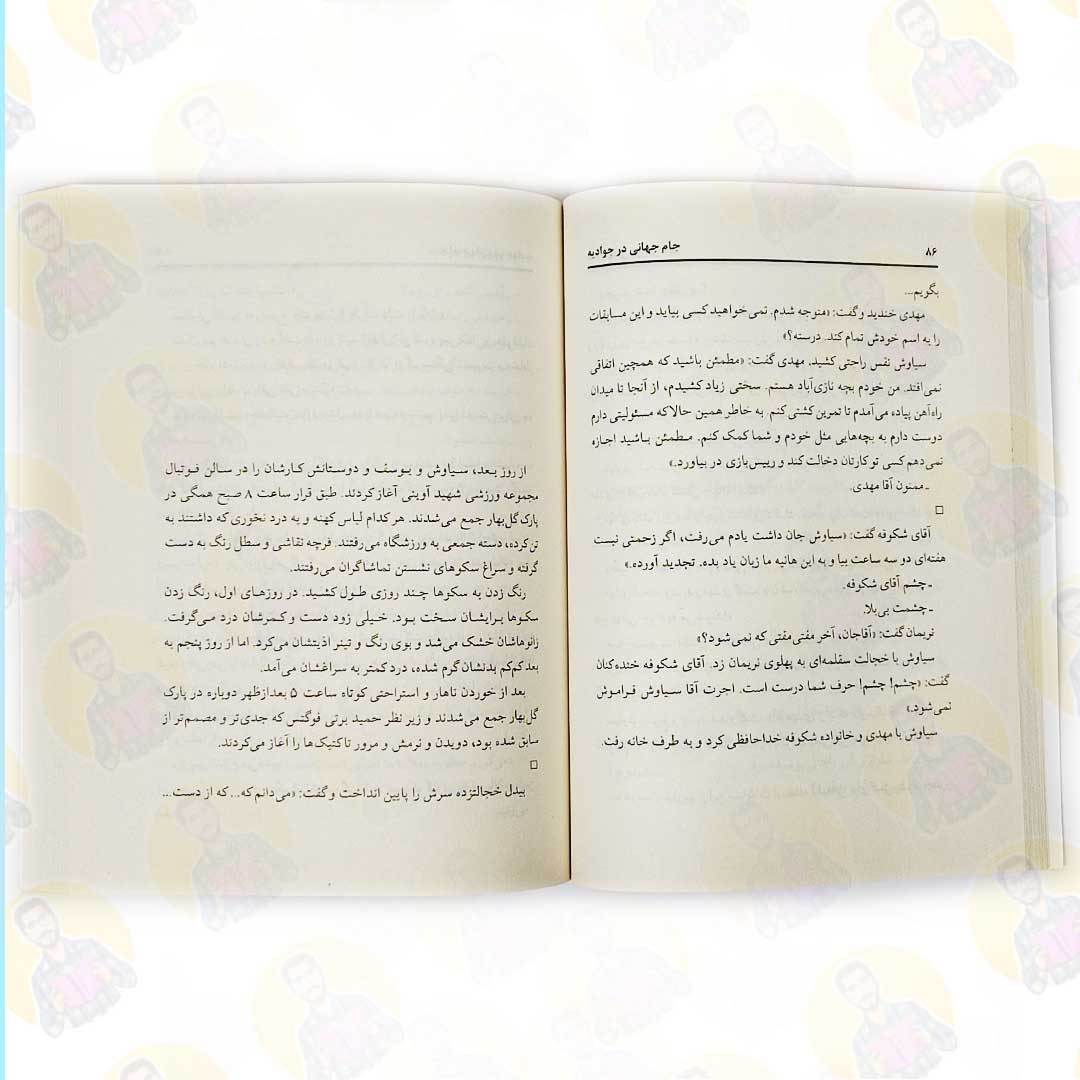 ۸۶
جام جهانی در جوادیه
بگویم...
مهدی خندید و گفت: «متوجه شدم. نمی‌خواهید کسی بیاید و این مسابقات
را به اسم خودش تمام کند. درسته؟»
سیاوش نفس راحتی کشید. مهدی گفت: «مطمئن باشید که همچین اتفاقی
نمی‌افتد. من خودم بچه نازی‌آباد هستم. سختی زیاد کشیدم، از آنجا تا میدان
راه‌آهن پیاده می‌آمدم تا تمرین کشتی کنم. به خاطر همین حالا که مسئولیتی دارم
دوست دارم به بچه‌هایی مثل خودم و شما کمک کنم. مطمئن باشید اجازه
نمی‌دهم کسی تو کارتان دخالت کند و رییس‌بازی در بیاورد.»
ـ ممنون آقا مهدی.
□
آقای شکوفه گفت: «سیاوش جان داشت یادم می‌رفت، اگر زحمتی نیست
هفته‌ای دو سه ساعت بیا و به این هانیه ما زبان یاد بده. تجدید آورده.»
ـ چشم آقای شکوفه.
ـ چشمت بی‌بلا.
نریمان گفت: «آقاجان، آخر مفتی‌مفتی که نمی‌شود؟»
سیاوش با خجالت سقلمه‌ای به پهلوی نریمان زد. آقای شکوفه خنده‌کنان
گفت: «چشم! چشم! حرف شما درست است. اجرت آقا سیاوش فراموش
نمی‌شود.»
سیاوش با مهدی و خانواده شکوفه خداحافظی کرد و به طرف خانه رفت.
از روز بعد، سیاوش و یوسف و دوستانش کارشان را در سالن فوتبال
مجموعه ورزشی شهید آوینی آغاز کردند. طبق قرار ساعت ۸ صبح همگی در
پارک گل‌بهار جمع می‌شدند. هر کدام لباس کهنه و به درد نخوری که داشتند به
تن کرده، دسته جمعی به ورزشگاه می‌رفتند. فرچه نقاشی و سطل رنگ به دست
گرفته و سراغ سکوهای نشستن تماشاگران می‌رفتند.
رنگ زدن به سکوها چند روزی طول کشید. در روزهای اول، رنگ زدن
سکوها برایشان سخت بود. خیلی زود دست و کمرشان درد می‌گرفت.
زانوهاشان خشک می‌شد و بوی رنگ و تینر اذیتشان می‌کرد. اما از روز پنجم به
بعد کم‌کم بدنشان گرم شده، درد کمتر به سراغشان می‌آمد.
بعد از خوردن ناهار و استراحتی کوتاه ساعت ۵ بعدازظهر دوباره در پارک
گل‌بهار جمع می‌شدند و زیر نظر حمید برتی فوگتس که جدی‌تر و مصمم‌تر از
سابق شده بود، دویدن و نرمش و مرور تاکتیک‌ها را آغاز می‌کردند.
□
بیدل خجالتزده سرش را پایین انداخت و گفت: «می‌دانم که... که از دست...